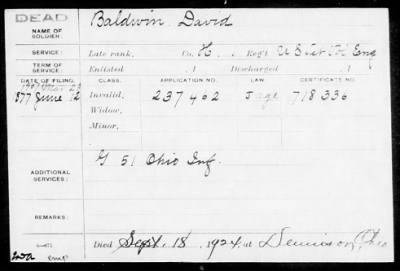 DEAD
NAME OF SOLDIER: Baldwin David
SERVICE: Late rank, Co. H. Reg't U S Vet Vol Eng
TERM OF SERVICE: Enlisted , 1 Discharged , 1
DATE OF FILING. CLASS. APPLICATION NO. LAW. CERTIFICATE NO.
1877 June 12 Invalid, 237462 718336
Widow,
Minor,
G 51 Ohio Inf.
ADDITIONAL SERVICES:
REMARKS:
Died Sept. 18, 1924, at Dennison, Ohio